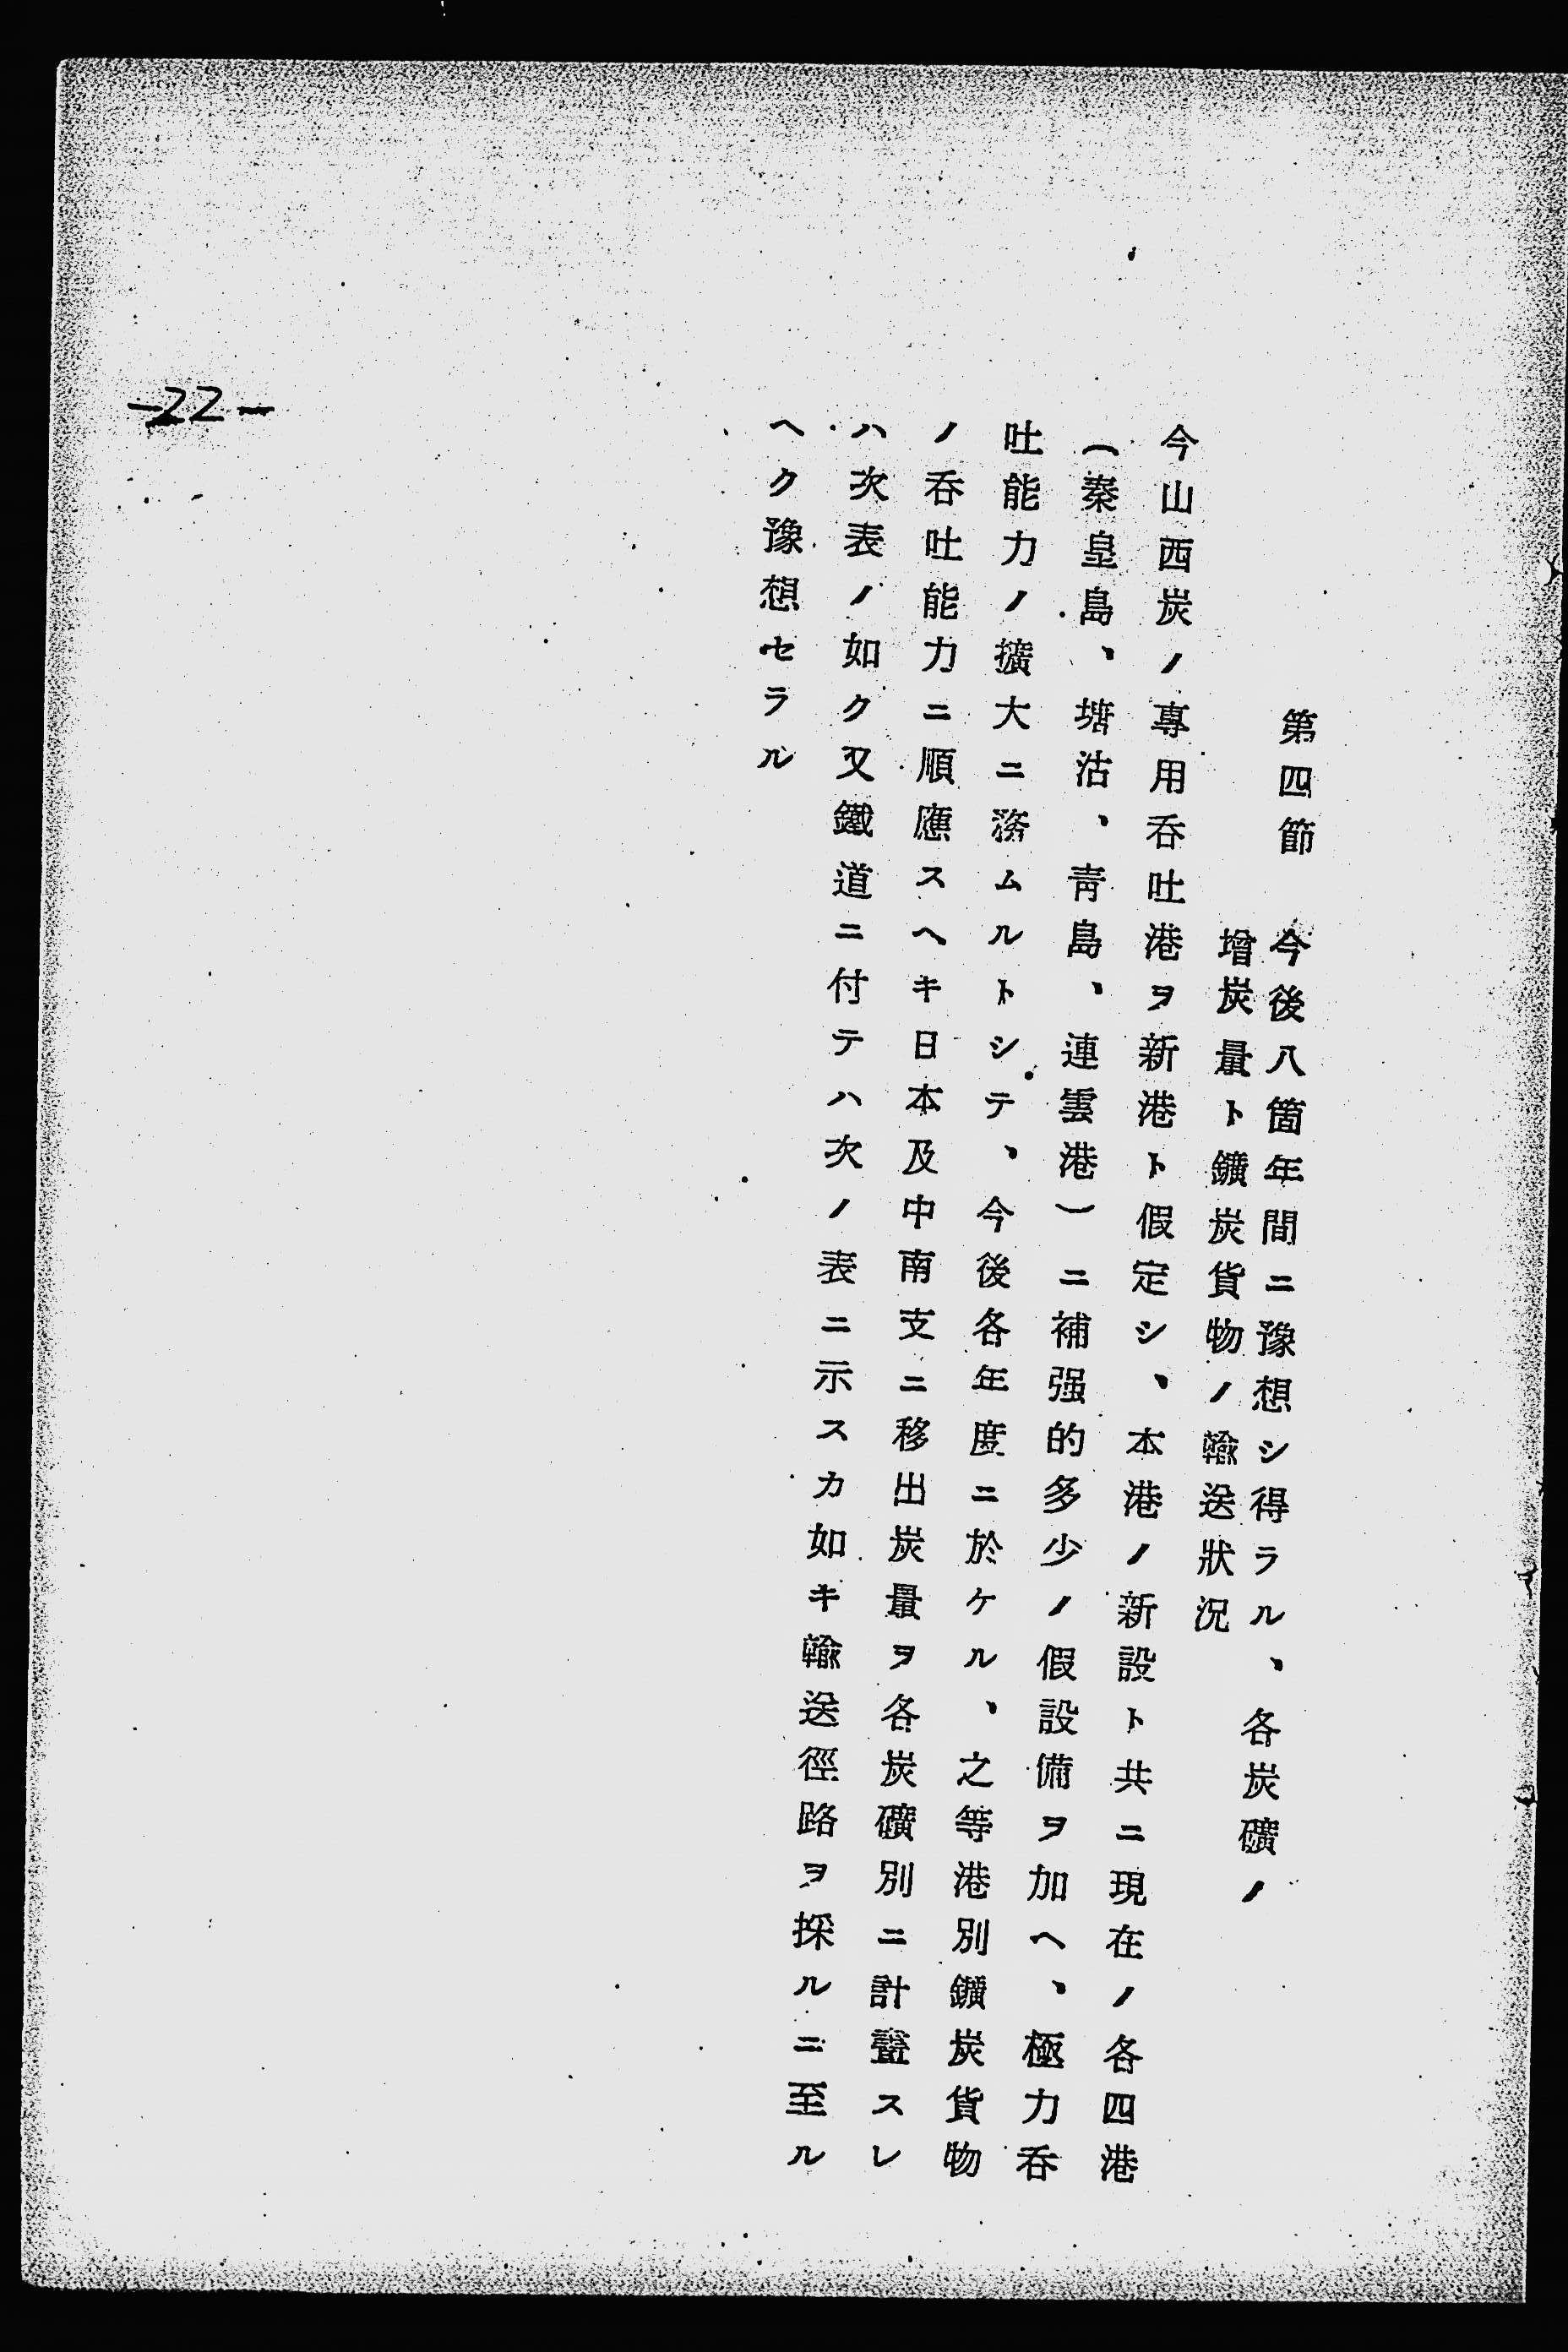 第四節　今後八箇年間ニ豫想シ得ラル、各炭礦ノ
增炭量ト鑛炭貨物ノ輸送狀況
今山西炭ノ專用呑吐港ヲ新港ト假定シ、本港ノ新設ト共ニ現在ノ各四港
（秦皇島、塘沽、靑島、連雲港）ニ補强的多少ノ假設備ヲ加へ、極力呑
吐能力ノ擴大ニ務ムルトシテ、今後各年度ニ於ケル、之等港別鑛炭貨物
ノ呑吐能力ニ順應スヘキ日本及中南支ニ移出炭量ヲ各炭礦別ニ計畫スレ
ハ次表ノ如ク又鐵道ニ付テハ次ノ表ニ示スカ如キ輸送徑路ヲ採ルニ至ル
ヘク豫想セラル
-22-